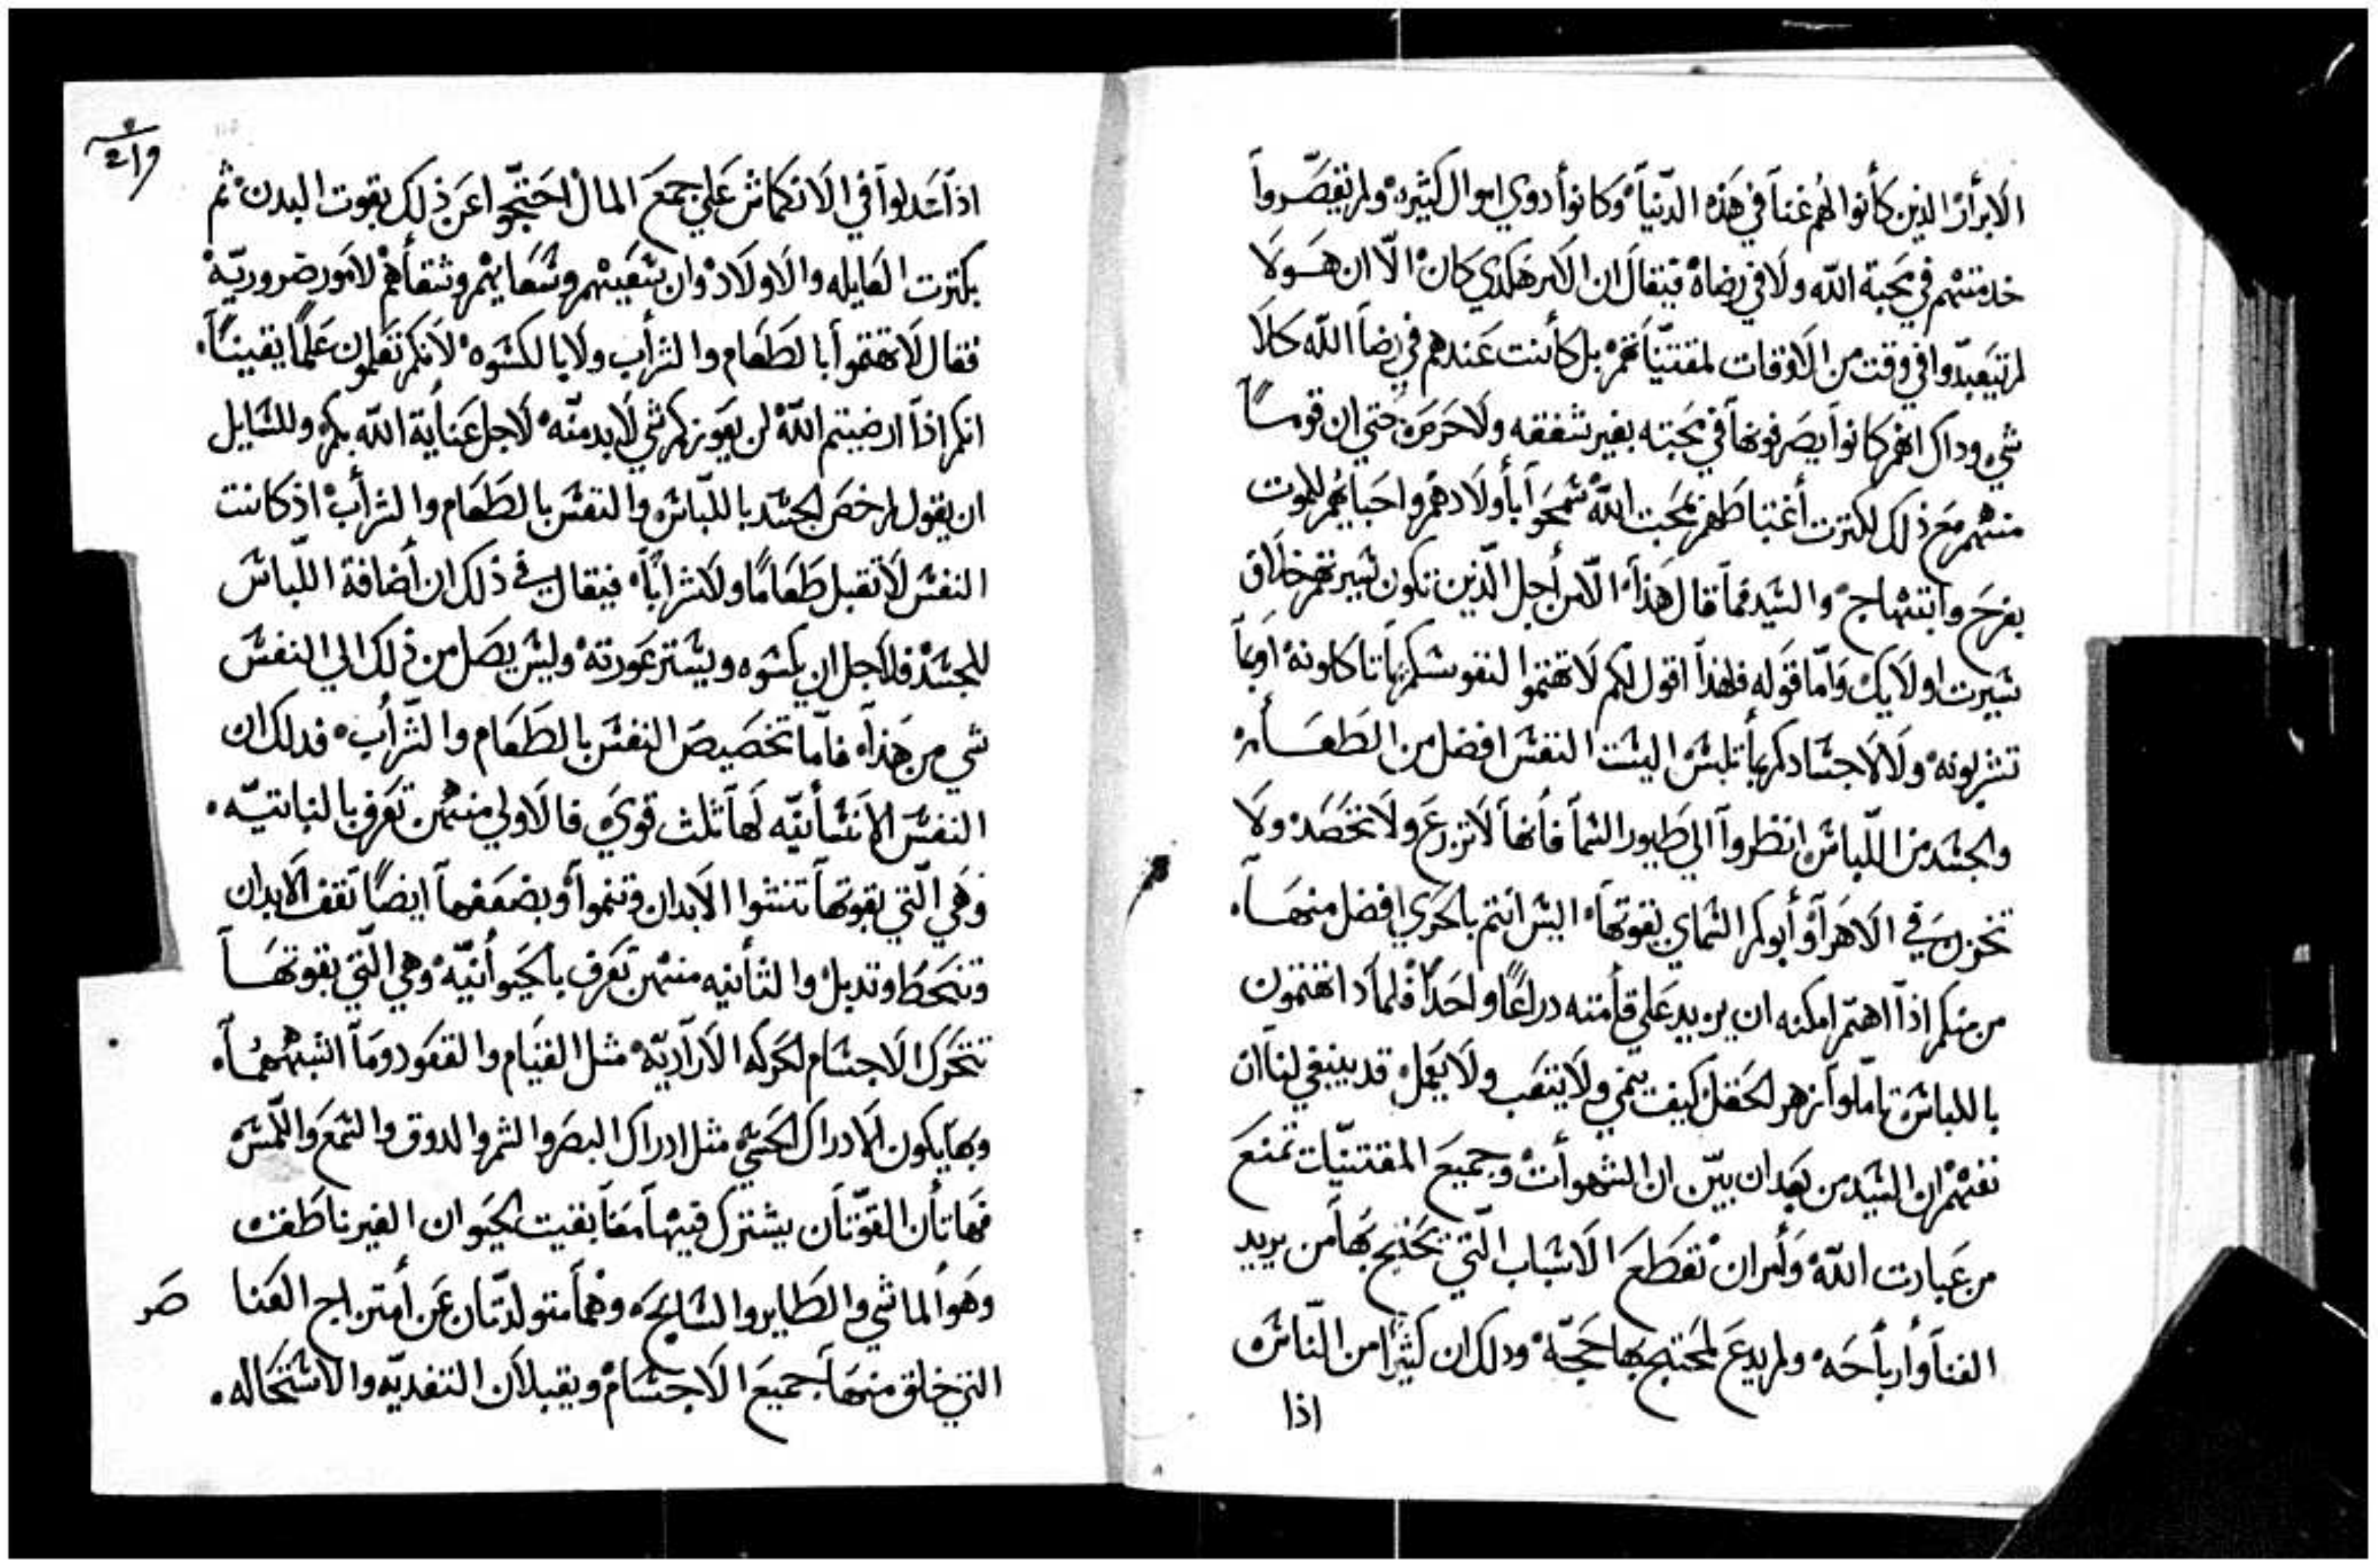 الابرار الذين كانوا لهم غنا في هذه الدنيا وكانوا دوي اموال كثيره ولم تقصروا
خدمتهم في محبة الله ولا في رضاه فيقال ان الامر هكدي كان الا ان هولا
لم تيعبدوا في وقت من الاوقات لمقتنياتهم بل كانت عندهم في رضا الله كلا
شي وداك انهم كانوا يصرفونها في محبته بغير شفقه ولا حرمه حتي ان قومًا
منهم مع ذلك لكترت اغتباطهم بمحبت الله سمحوا باولادهم واحبايهم للموت
بفرح وابتهاج والسيد فما قال هذا الا من اجل الذين تكون سيرتهم خلاق
سيرت اولايك واما قوله فلهذا اقول لكم لا تهتموا لنفوسكم بما تاكلونه او بما
تشربونه ولا لاجسادكم بما تلبس اليست النفس افضل من الطعام
والجسد من اللباس انظروا الي طيور السما فانها لا تزرع ولا تحصد ولا
تخزن في الاهرا وابوكم السماي يقوتها اليس انتم بالحري افضل منها
من منكم اذا اهتم امكنه ان يزيد علي قامته دراعًا واحدًا فلمادا تهتمون
باللباس تاملوا زهر الحقل كيف ينمي ولا يتعب ولا يعمل قد ينبغي لنا ان
نفهم ان السيد من بعد ان بين ان الشهوات وجميع المقتنيات تمنع
من عبادت الله وامر ان تقطع الاسباب التي يحتج بها من يريد
الغنا وارباحه ولم يدع لمحتج بها حجه ودلك ان كثيرًا من الناس
اذا
اذا عدلوا في الانكماش علي جمع المال احتجوا عن ذلك بقوت البدن ثم
بكترت العايله والاولاد وان تعبهم وسعايتهم وشقاهم لامور ضروريه
فقال لا تهتموا بالطعام والشراب ولا بالكسوه لانكم تعلمون علمًا يقينًا
انكم اذا ارضيتم الله لن يعوزكم شي لا بد منه لاجل عناية الله بكم وللسايل
ان يقول لم خص الجسد باللباس والنفس بالطعام والشراب اذ كانت
النفس لا تقبل طعامًا ولا شرابًا فيقال في ذلك ان اضافة اللباس
للجسد فلاجل ان يكسوه ويستر عورته وليس يصل من ذلك الي النفس
شي من هذا فاما تخصيص النفس بالطعام والشراب فدلك ان
النفس الانسانيه لها ثلث قوي فالاولي منهن تعرف بالنباتيه
وهي التي بقوتها تنشوا الابدان وتنموا وبضعفها ايضًا تقف الابدان
وتنحط وتدبل والثانيه منهن تعرف بالحيوانيه وهي التي بقوتها
تتحرك الاجسام الحركه الاراديه مثل القيام والقعود وما اشبههما
وبها يكون الادراك الحسي مثل ادراك البصر والشم والدوق والسمع واللمس
فهاتان القوتان يشترك فيها معنا بقيت الحيوان الغير ناطقه
وهو الماشي والطاير والسابح وهما متولدتان عن امتزاج العنا صر
التي خلق منها جميع الاجسام ويقبلان التغديه والاستحاله